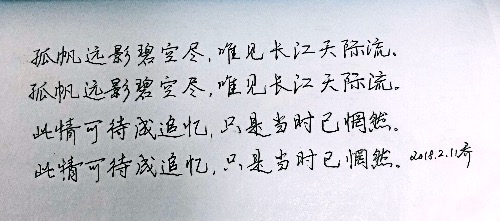 孤帆远影碧空尽，唯见长江天际流。
孤帆远影碧空尽，唯见长江天际流。
此情可待成追忆，只是当时已惘然。
此情可待成追忆，只是当时已惘然。2018.2.11